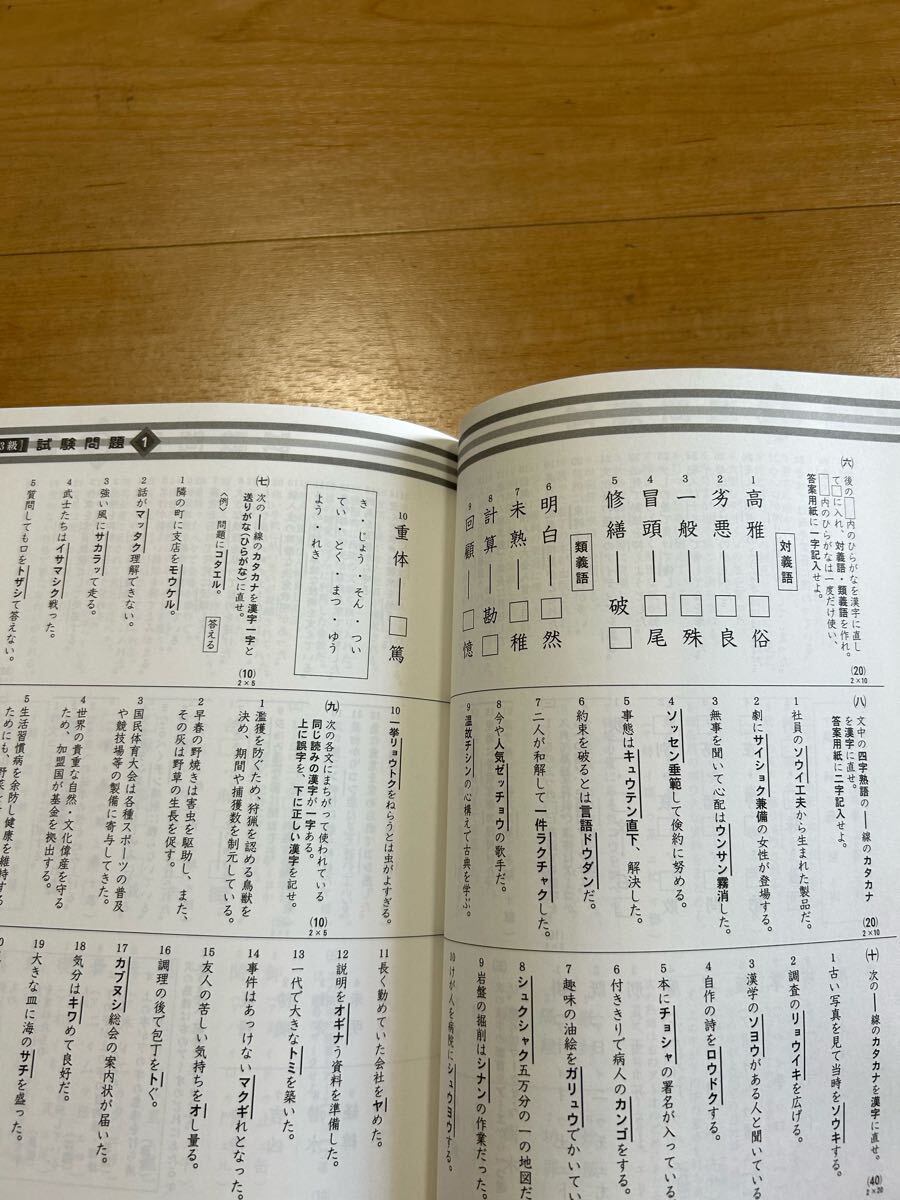 3級】試験問題 1
㈥ 後の□内のひらがなを漢字に直し
て□に入れ、対義語・類義語を作れ。
□内のひらがなは一度だけ使い、
答案用紙に一字記入せよ。
(20)
2×10
対義語
1 高雅―□俗
2 劣悪―□良
3 一般―□殊
4 冒頭―□尾
5 修繕―破□
類義語
6 明白―□然
7 未熟―□稚
8 計算―勘□
9 回顧―□憶
10 重体―□篤
き・じょう・そん・つい
てい・とく・まつ・ゆう
よう・れき
㈦ 次の―線のカタカナを漢字一字と
送りがな(ひらがな)に直せ。
〈例〉問題にコタエル。
答える
(10)
2×5
1 隣の町に支店をモウケル。
2 話がマッタク理解できない。
3 強い風にサカラッて走る。
4 武士たちはイサマシク戦った。
5 質問しても口をトザシて答えない。
㈧ 文中の四字熟語の―線のカタカナ
を漢字に直せ。
答案用紙に二字記入せよ。
(20)
2×10
1 社員のソウイ工夫から生まれた製品だ。
2 劇にサイショク兼備の女性が登場する。
3 無事を聞いて心配はウンサン霧消した。
4 ソッセン垂範して倹約に努める。
5 事態はキュウテン直下、解決した。
6 約束を破るとは言語ドウダンだ。
7 二人が和解して一件ラクチャクした。
8 今や人気ゼッチョウの歌手だ。
9 温故チシンの心構えで古典を学ぶ。
10 一挙リョウトクをねらうとは虫がよすぎる。
㈨ 次の各文にまちがって使われている
同じ読みの漢字が一字ある。
上に誤字を、下に正しい漢字を記せ。
(10)
2×5
1 濫獲を防ぐため、狩猟を認める鳥獣を
決め、期間や捕獲数を制元している。
2 早春の野焼きは害虫を駆助し、また、
その灰は野草の生長を促す。
3 国民体育大会は各種スポーツの普及
や競技場等の製備に寄与してきた。
4 世界の貴重な自然・文化偉産を守る
ため、加盟国が基金を拠出する。
5 生活習慣病を余防し健康を維持する
ためにも、野菜
㈩ 次の―線のカタカナを漢字に直せ。
(40)
2×20
1 古い写真を見て当時をソウキする。
2 調査のリョウイキを広げる。
3 漢学のソヨウがある人と聞いている
4 自作の詩をロウドクする。
5 本にチョシャの署名が入っている
6 付ききりで病人のカンゴをする。
7 趣味の油絵をガリュウでかいてい
8 シュクシャク五万分の一の地図だ
9 岩盤の掘削はシナンの作業だった。
10 けが人を病院にシュウヨウする。
11 長く勤めていた会社をヤめた。
12 説明をオギナう資料を準備した。
13 一代で大きなトミを築いた。
14 事件はあっけないマクギれとなった。
15 友人の苦しい気持ちをオし量る。
16 調理の後で包丁をトぐ。
17 カブヌシ総会の案内状が届いた。
18 気分はキワめて良好だ。
19 大きな皿に海のサチを盛った。